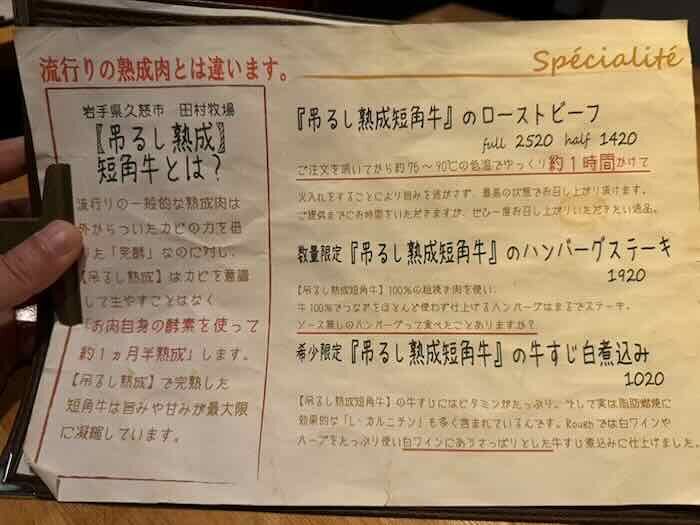 流行りの熟成肉とは違います。
岩手県久慈市 田村牧場
【吊るし熟成】
短角牛とは?
流行りの一般的な熟成肉は
外からついたカビの力を借
りた「完酵」なのに対し、
【吊るし熟成】はカビを意識
して生やすことはなく
「お肉自身の酵素を使って
約1ヵ月半熟成」します。
【吊るし熟成】で完熟した
短角牛は旨みや甘みが最大限
に凝縮しています。
Spécialité
『吊るし熟成短角牛』のローストビーフ
full 2520 half 1420
ご注文を頂いてから約75～90℃の低温でゆっくり約1時間かけて
火入れをすることにより旨みを逃がさず、最高の状態でお召し上がり頂けます。
ご提供までにお時間をいただきますが、ぜひ一度お召し上がりいただきたい逸品。
数量限定『吊るし熟成短角牛』のハンバーグステーキ
1920
【吊るし熟成短角牛】100%の粗挽き肉を使い、
牛100%でつなぎをほとんど使わず仕上げるハンバーグはまるでステーキ。
ソース無しのハンバーグって食べたことありますか?
希少限定『吊るし熟成短角牛』の牛すじ白煮込み
1020
【吊るし熟成短角牛】の牛すじにはビタミンがたっぷり。そして実は脂肪燃焼に
効果的な「L・カルニチン」も多く含まれているんです。Roughでは白ワインや
ハーブをたっぷり使い白ワインにあうさっぱりとした牛すじ煮込みに仕上げました。